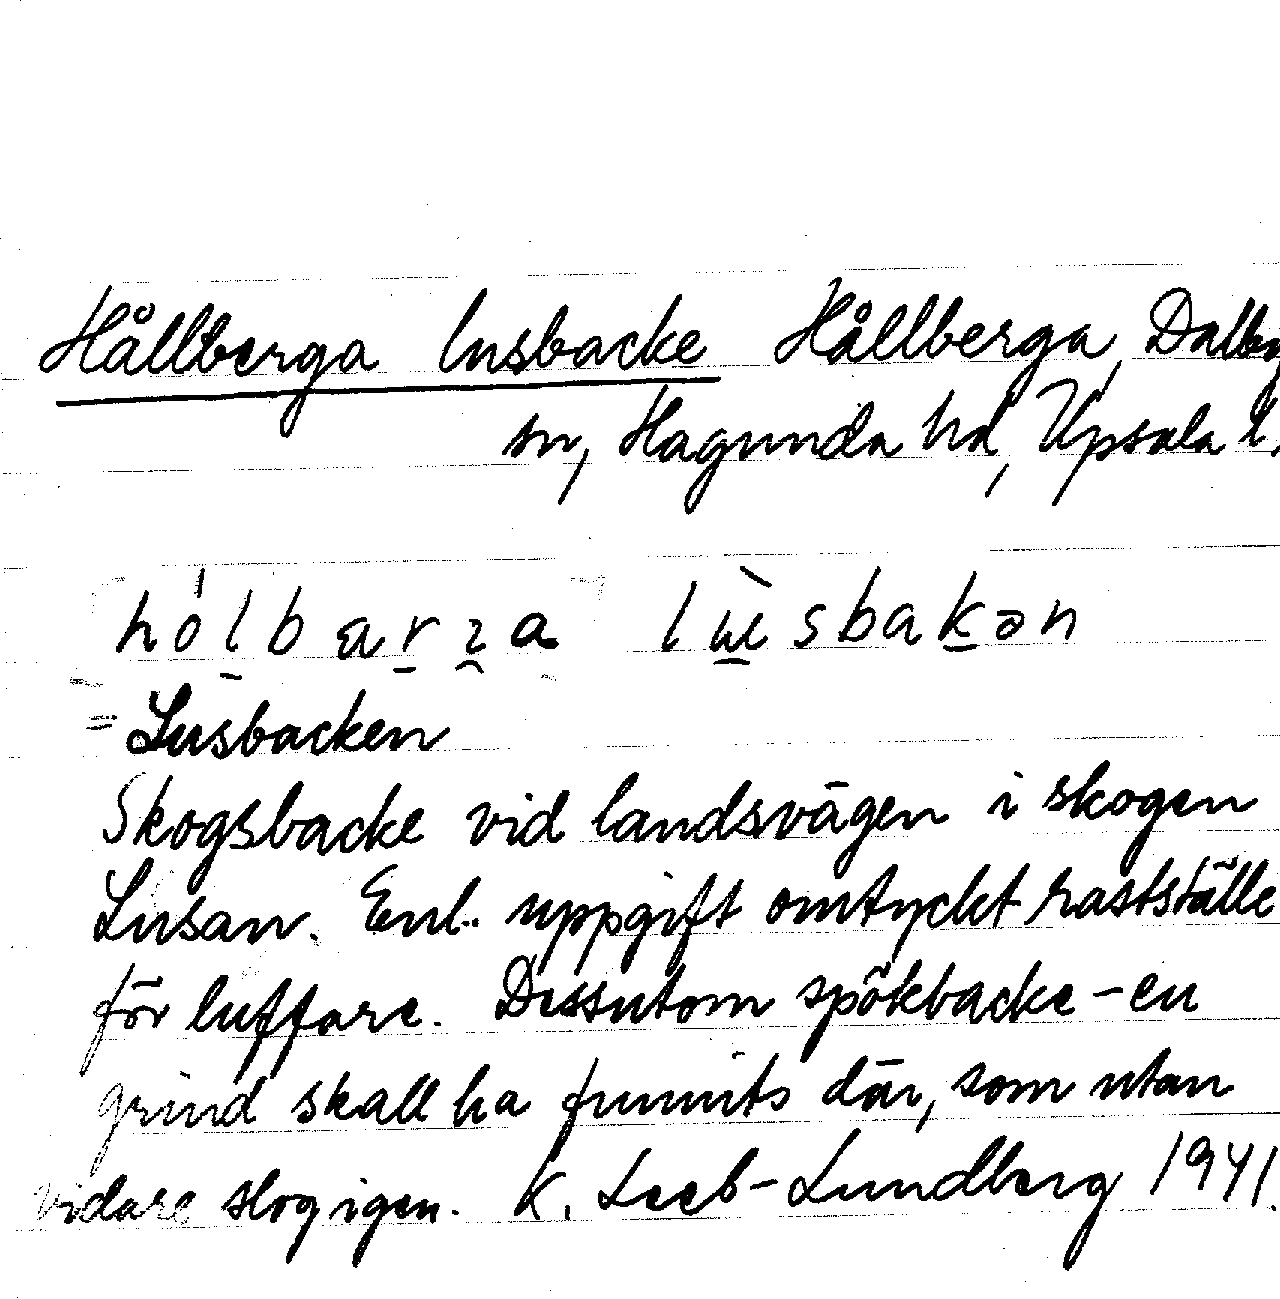 Hållberga lusbacke Hållberga, Dalby
sn, Hagunda hd, Upsala l.
hólbarɀa lùsbakən
= Lusbacken
Skogsbacke vid landsvägen i skogen
Lusan. Enl. uppgift omtyckt rastställe
för luffare. Dessutom spökbacke - en
grind skall ha funnits där, som utan
vidare slog igen. K. Leeb-Lundberg 1941.